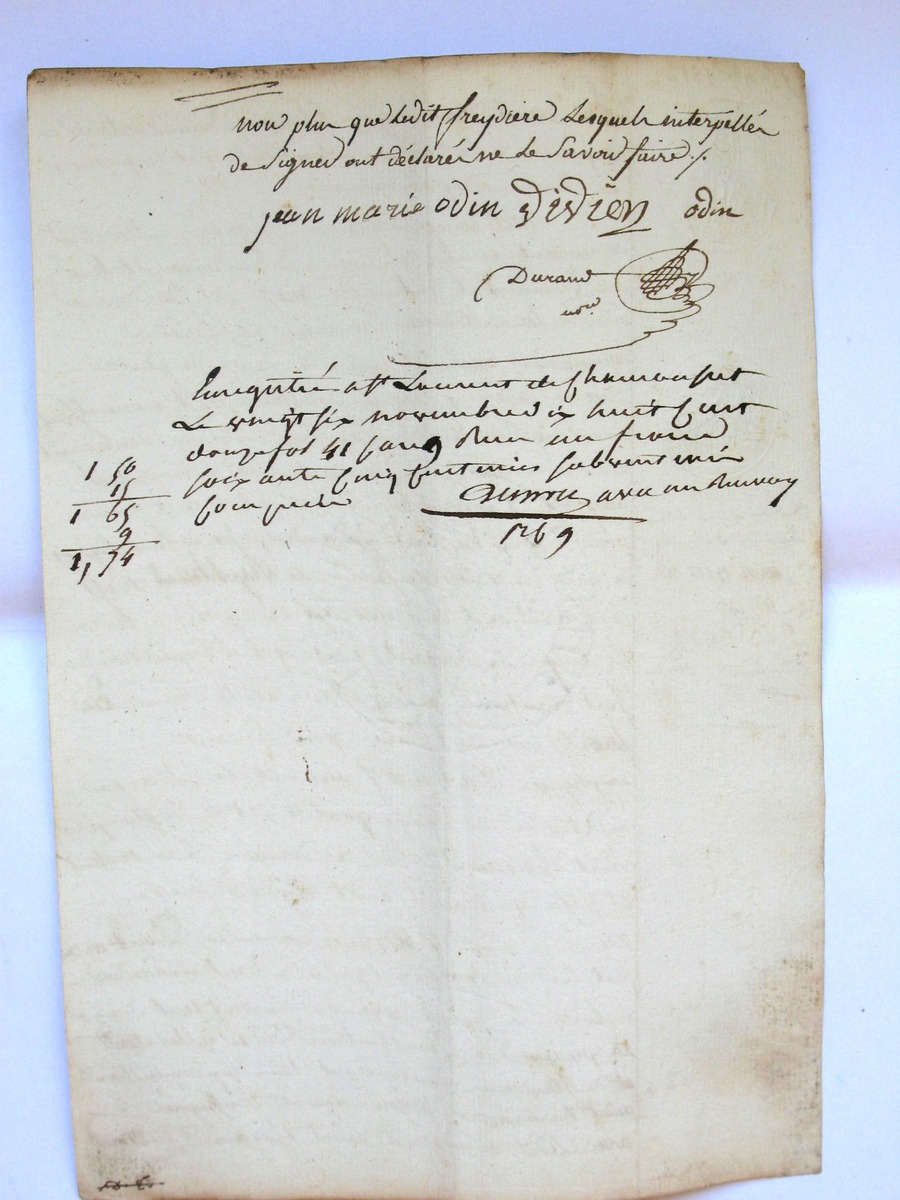 non plus que ledit freydiere lesquels interpellés
de signer ont déclarés ne le savoir faire ./.
jean marie odin Didiën odin
Durand
nore
Enregistré a St Laurent de Chamousset
Le vingt six novembre dix huit cent
douze fol 41 Reçu un franc
soixante cinq centimes subvention
comprise
1 50
15
1 65
9
1,74
1269